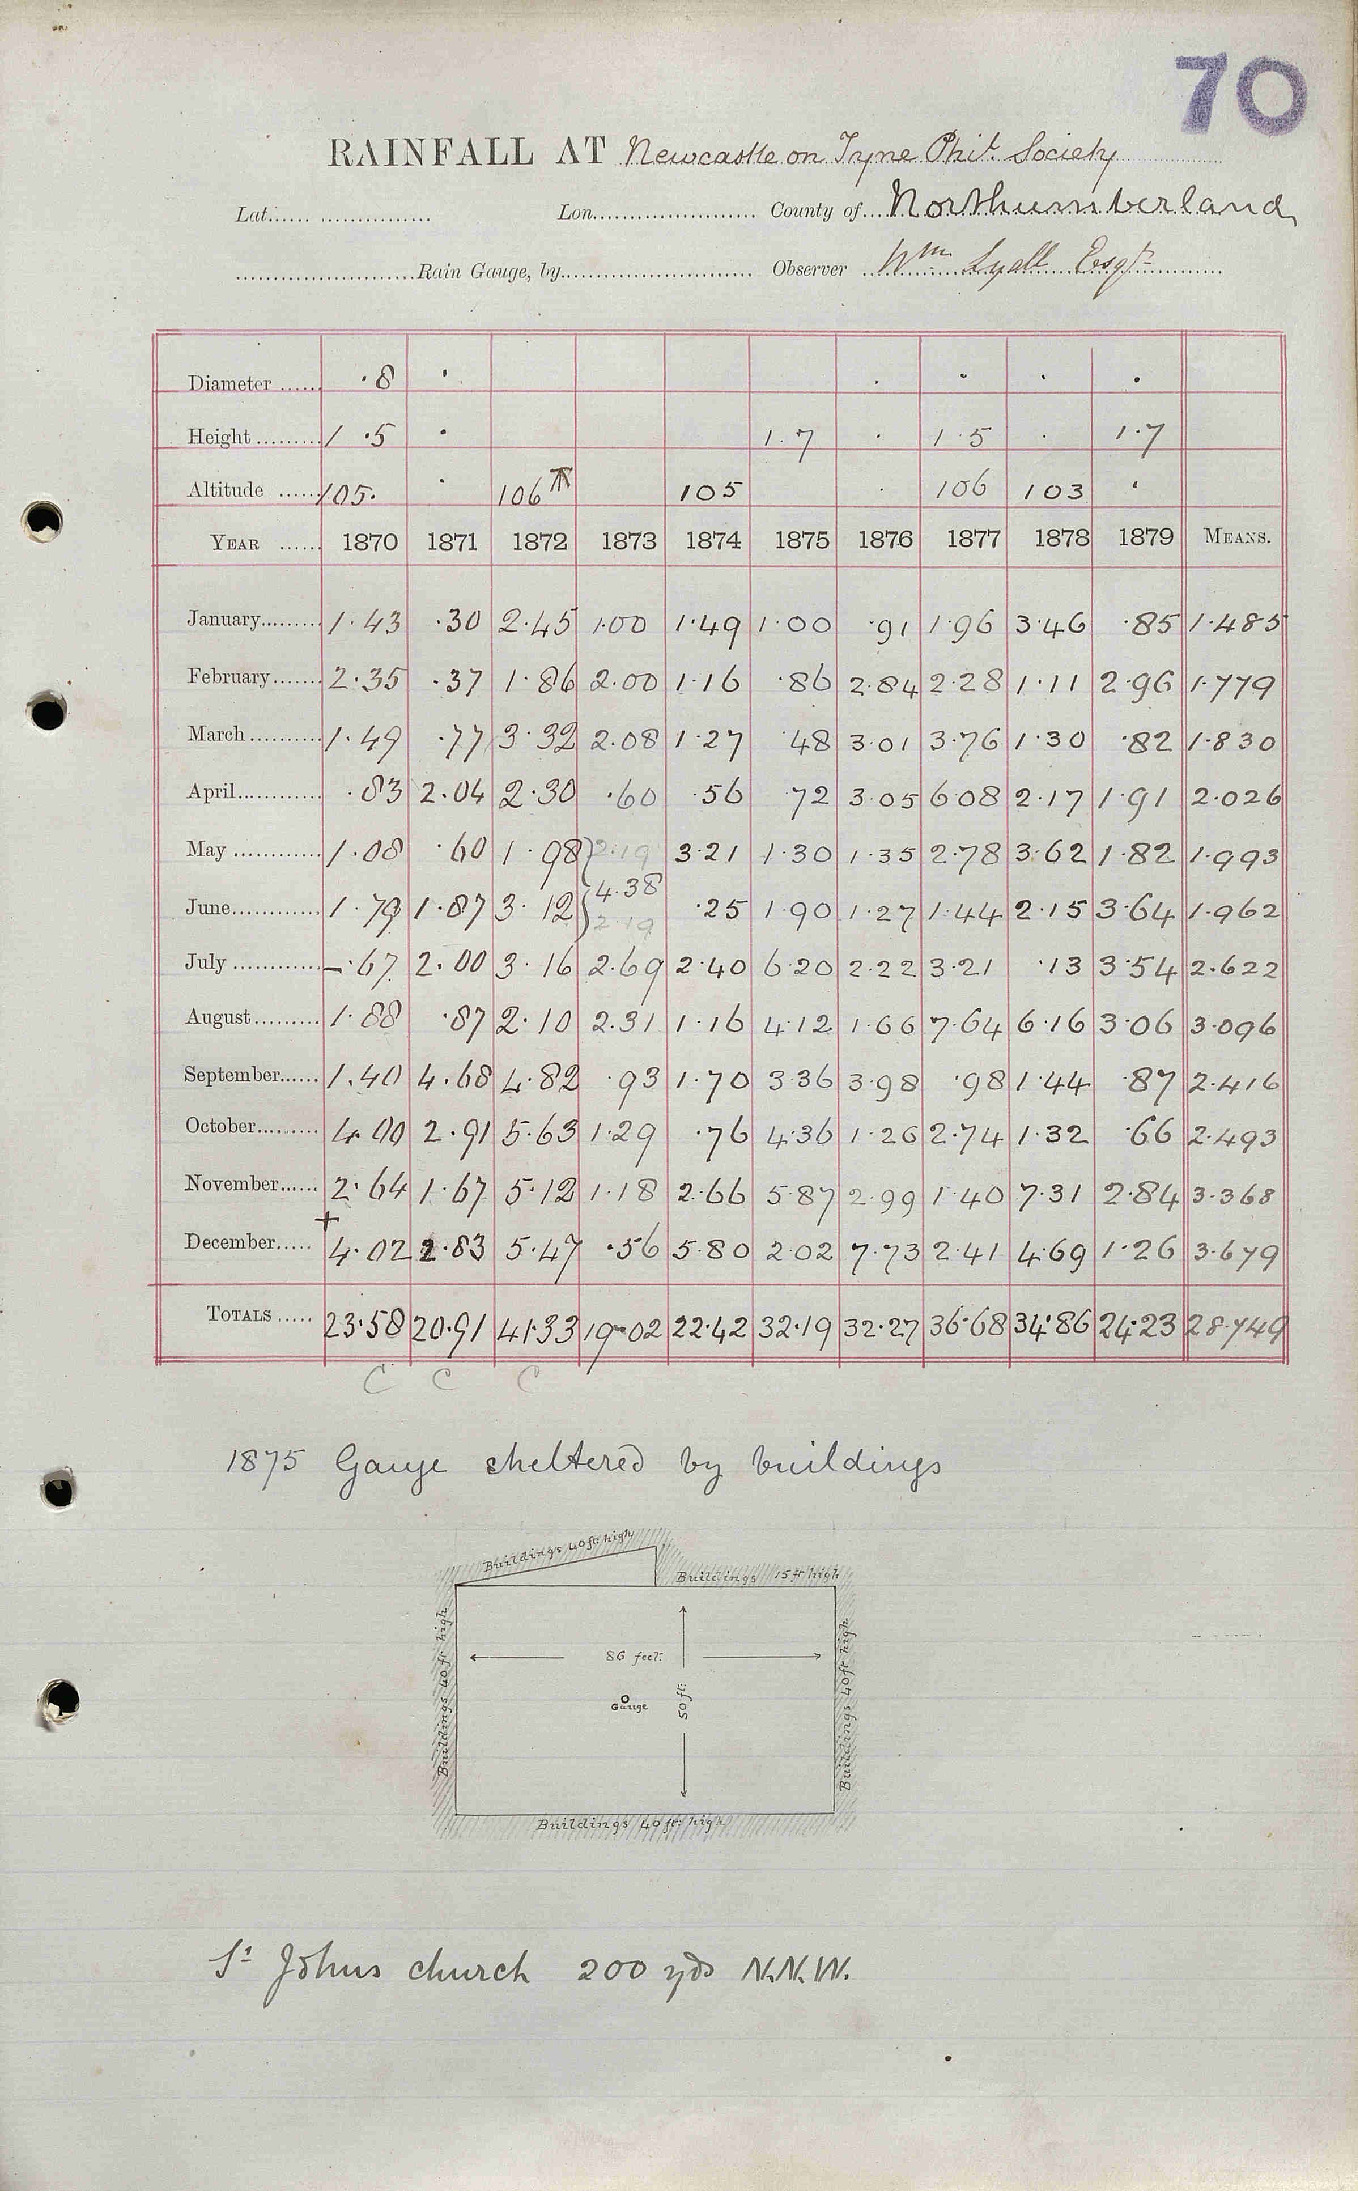 70
RAINFALL AT Newcastle on Tyne Phil. Society
Lat. Lon. County of Northumberland
Rain Gauge, by Observer Wm Lyall Esqr
Diameter ·8 · · · · ·
Height 1·5 · 1·7 · 1·5 · 1·7
Altitude 105· · 106 T 105 · 106 103 ·
YEAR 1870 1871 1872 1873 1874 1875 1876 1877 1878 1879 MEANS.
January 1·43 ·30 2·45 1·00 1·49 1·00 ·91 1·96 3·46 ·85 1·485
February 2·35 ·37 1·86 2·00 1·16 ·86 2·84 2·28 1·11 2·96 1·779
March 1·49 ·77 3·32 2·08 1·27 ·48 3·01 3·76 1·30 ·82 1·830
April ·83 2·04 2·30 ·60 ·56 ·72 3·05 6·08 2·17 1·91 2·026
May 1·08 ·60 1·98 2·19 3·21 1·30 1·35 2·78 3·62 1·82 1·993
4·38
June 1·79 1·87 3·12 2·19 ·25 1·90 1·27 1·44 2·15 3·64 1·962
July –·67 2·00 3·16 2·69 2·40 6·20 2·22 3·21 ·13 3·54 2·622
August 1·88 ·87 2·10 2·31 1·16 4·12 1·66 7·64 6·16 3·06 3·096
September 1·40 4·68 4·82 ·93 1·70 3·36 3·98 ·98 1·44 ·87 2·416
October 4·00 2·91 5·63 1·29 ·76 4·36 1·26 2·74 1·32 ·66 2·493
November 2·64 1·67 5·12 1·18 2·66 5·87 2·99 1·40 7·31 2·84 3·368
December + 4·02 2·83 5·47 ·56 5·80 2·02 7·73 2·41 4·69 1·26 3·679
TOTALS 23·58 20·91 41·33 19·02 22·42 32·19 32·27 36·68 34·86 24·23 28·749
C C C
1875 Gauge sheltered by buildings
Buildings 40 ft high
Buildings 15 ft high
Buildings 40 ft high
86 feet
50 ft
Gauge
Buildings 40 ft high
Buildings 40 ft high
St Johns church 200 yds N.N.W.